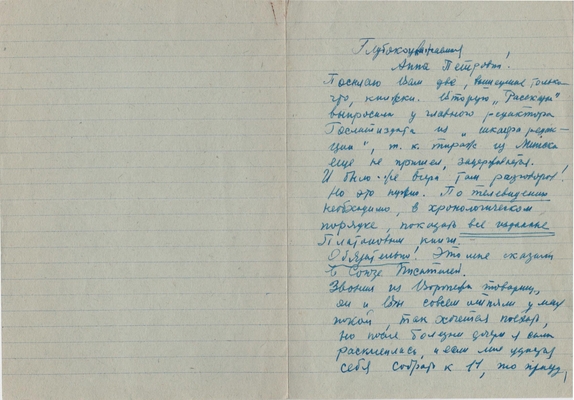 Глубокоуважаемая
Анна Петровна!
Посылаю Вам две, вышедшие только
что, книжки. Вторую „Рассказы"
выпросила у главного редактора
Гослитиздата из „шкафа редак-
ции", т. к. тираж из Минска
еще не пришел, задерживается.
И было уже вчера там разговоров!
Но это нужно. По телевидению
необходимо, в хронологическом
порядке, показать все изданные
Платоновым книги.
Обязательно! Это мне сказали
в Союзе Писателей.
Звонил из Воронежа товарищ,
он и Вы совсем отняли у меня
покой, так хочется поехать,
но после болезни дочери я сама
расклеилась, и если мне удастся
себя собрать к 11, то приеду,